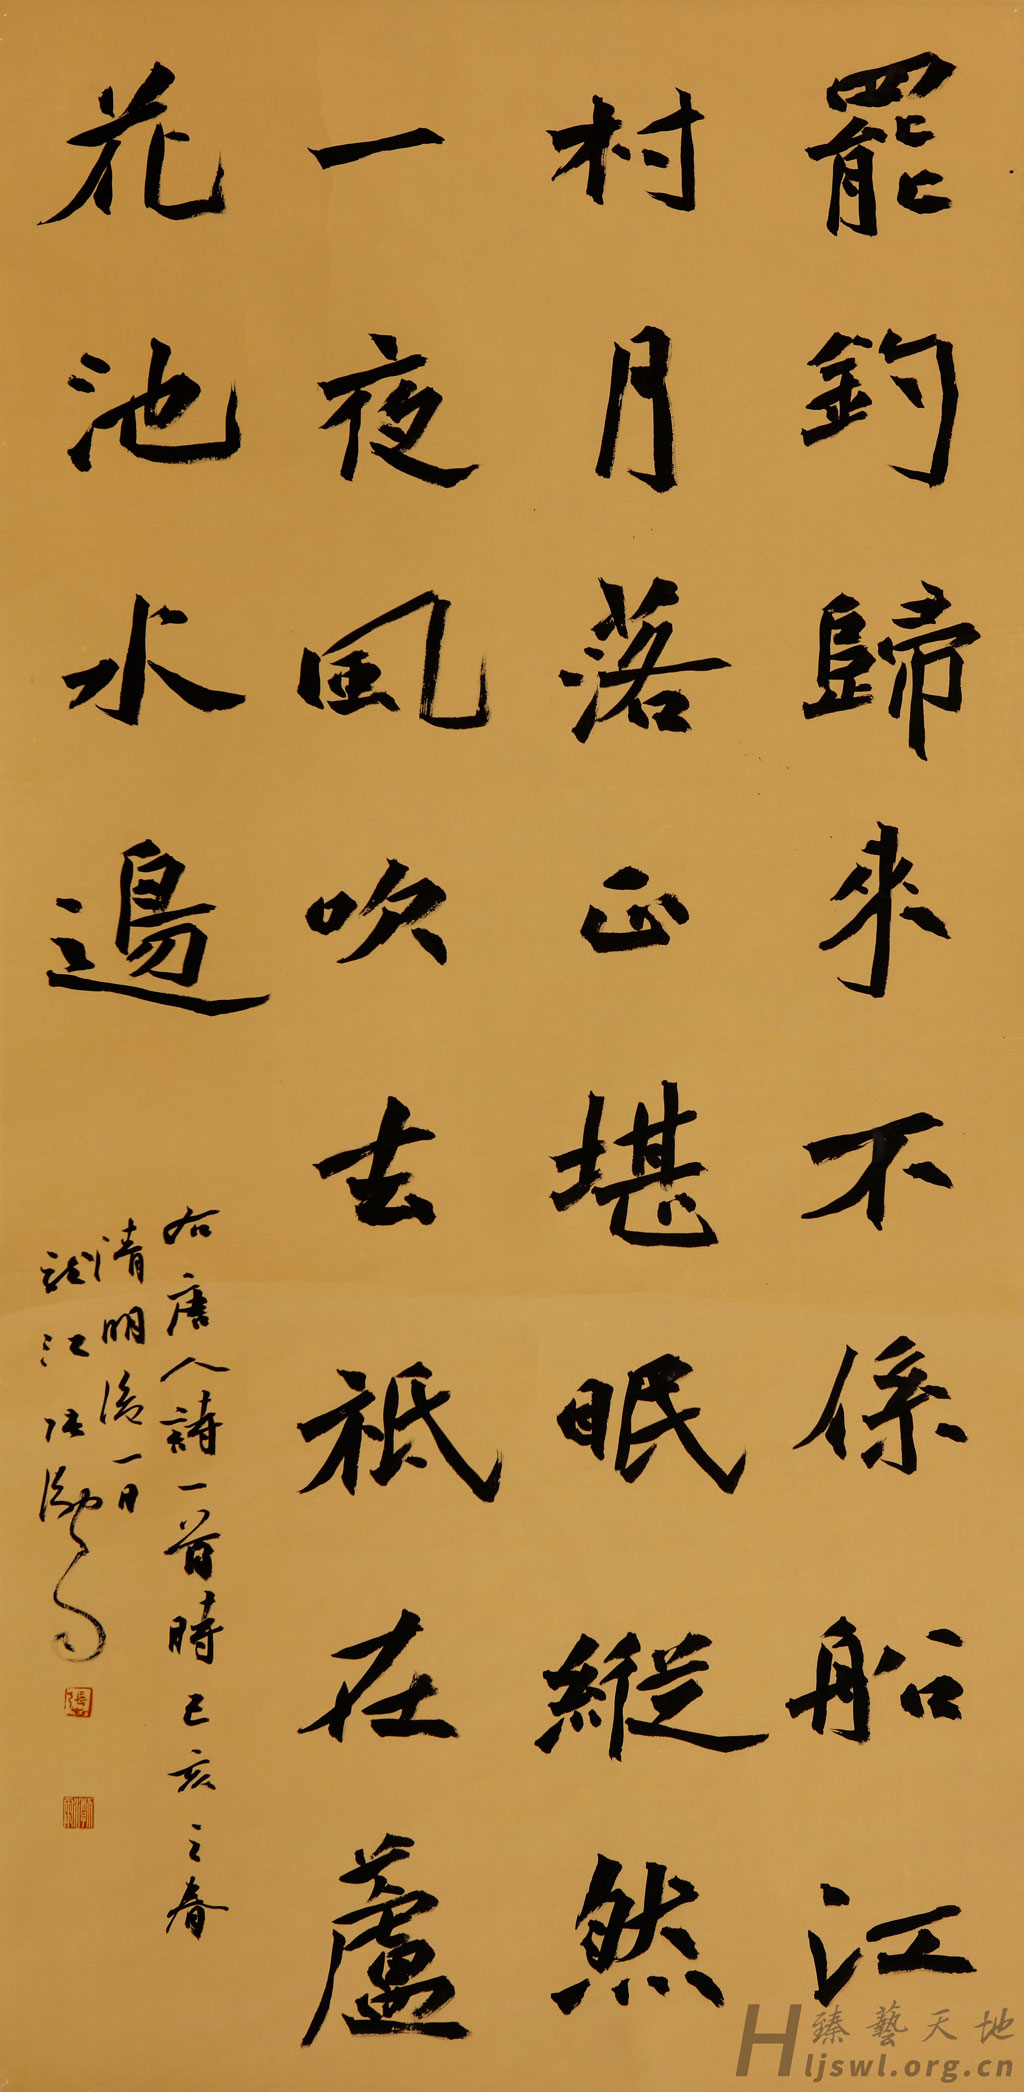 罷釣歸來不係船江
村月落正堪眠縱然
一夜風吹去祇在蘆
花池水邊
右唐人詩一首時己亥之春
清明後一日
龍江張
臻藝天地
Hljswl.org.cn